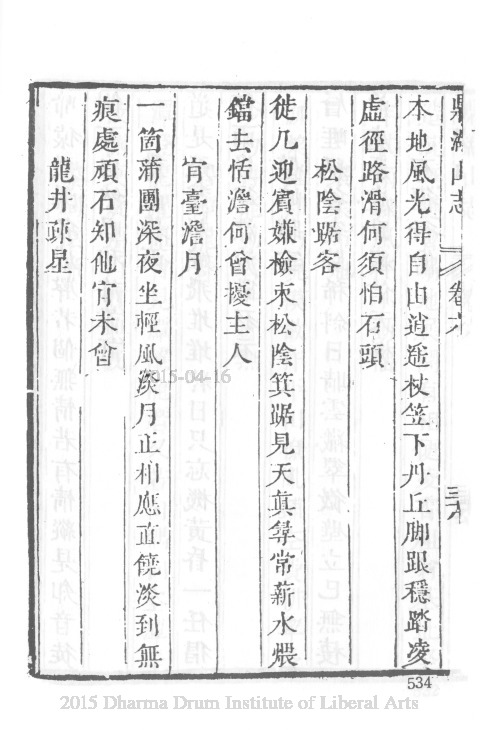 鼎湖山志
卷六
三六
本地風光得自由逍遙杖笠下丹丘脚跟穩踏凌
虛徑路滑何須怕石頭
松陰踞客
徙几迎賓嫌檢束松陰箕踞見天眞尋常薪水煨
鐺去恬澹何曾擾主人
肯臺澹月
一箇蒲團深夜坐輕風淡月正相應直饒淡到無
痕處頑石知他肯未曾
龍井疎星
2015-04-16
534
2015 Dharma Drum Institute of Liberal Arts